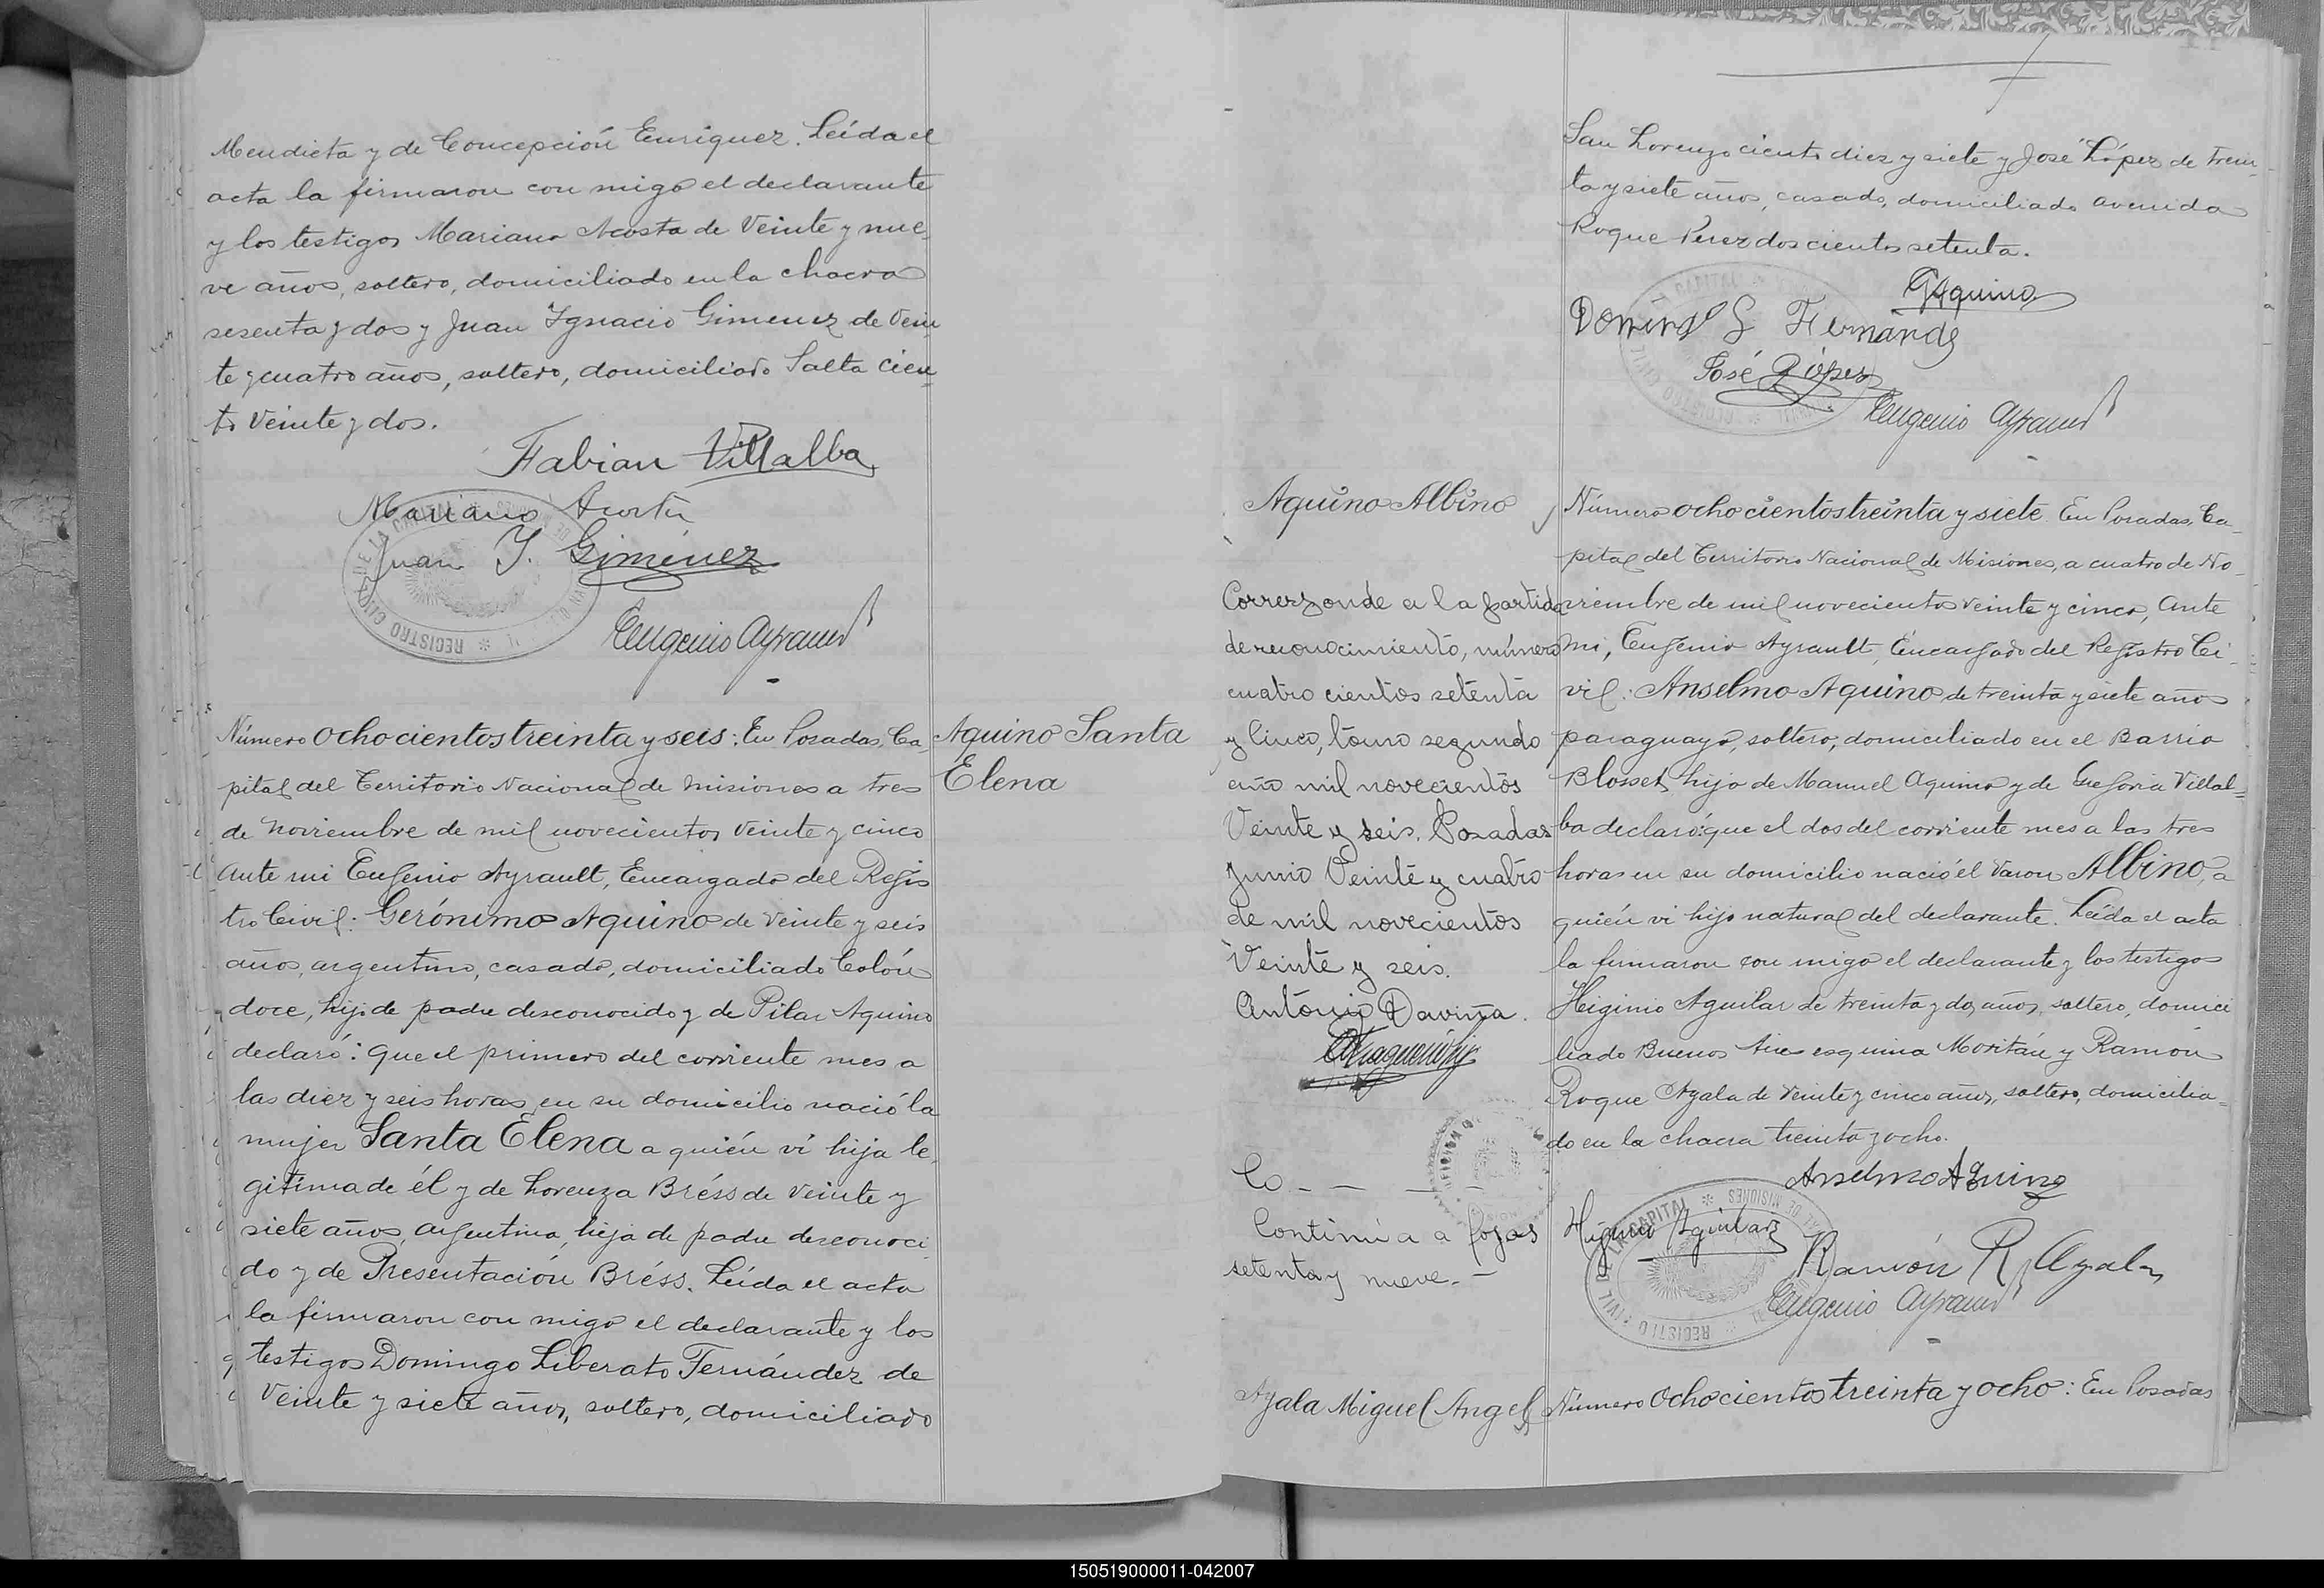 Mendieta y de Concepción Enriquez. Leída el
acta la firmaron con migo el declarante
y los testigos Mariano Acosta de Veinte y nue-
ve años, soltero, domiciliado en la chacra
sesenta y dos y Juan Ygnacio Gimenez de Vein
te y cuatro años, soltero, domiciliado Salta cien-
to Veinte y dos.
Fabian Villalba
Mariano Acosta
Juan Y. Giménez
REGISTRO CIVIL DE LA CAPITAL
Eugenio Ayrault
Número ochocientos treinta y seis: En Posadas, Ca
pital del Territorio Nacional de Misiones a tres
de Noviembre de mil novecientos Veinte y cinco
Ante mi Eugenio Ayrault, Encargado del Regis
tro Civil: Gerónimo Aquino de Veinte y seis
años, argentino, casado, domiciliado Colón
doce, hijo de padre desconocido y de Pilar Aquino
declaró: que el primero del corriente mes a
las diez y seis horas, en su domicilio nació la
mujer Santa Elena a quién vi hija le
gitima de él y de Lorenza Bréss de Veinte y
siete años, argentina, hija de padre desconoci
do y de Presentación Bréss. Leída el acta
la firmaron con migo el declarante y los
testigos Domingo Liberato Fernández de
Veinte y siete años, soltero, domiciliado
Aquino Santa
Elena
San Lorenzo ciento diez y siete y José López de trein-
ta y siete años, casado, domiciliado avenida
Roque Perez doscientos setenta.
GAquino
Domingo L Fernandez
José López
Eugenio Ayrault
Aquino Albino
Corresponde a la partida
de reconocimiento, número
cuatro cientos setenta
y Cinco, tomo segundo
año mil novecientos
Veinte y seis. Posadas
Junio Veinte y cuatro
de mil novecientos
Veinte y seis.
Antonio Daviña.
Co - - - -
Continúa a fojas
setenta y nueve. -
Número ochocientos treinta y siete. En Posadas, Ca-
pital del Territorio Nacional de Misiones, a cuatro de No-
viembre de mil novecientos veinte y cinco, Ante
mi, Eugenio Ayrault, Encargado del Registro Ci-
vil: Anselmo Aquino de treinta y siete años
paraguayo, soltero, domiciliado en el Barrio
Blosset, hijo de Manuel Aquino y de Gregoria Villal=
ba declaró: que el dos del corriente mes a las tres
horas en su domicilio nació el Varon Albino, a
quién vi hijo natural del declarante. Leída el acta
la firmaron con migo el declarante y los testigos
Higinio Aguilar de treinta y dos años, soltero, domici
liado Buenos Aires esquina Moritán y Ramón
Roque Ayala de Veinte y cinco años, soltero, domicilia-
do en la chacra treinta y ocho.
Anselmo Aquino
Higinio Aguilar
Ramón R. Ayala
REGISTRO CIVIL DE LA CAPITAL * DE MISIONES
Eugenio Ayrault
Ayala Miguel Angel
Número Ochocientos treinta y ocho: En Posadas
150519000011-042007